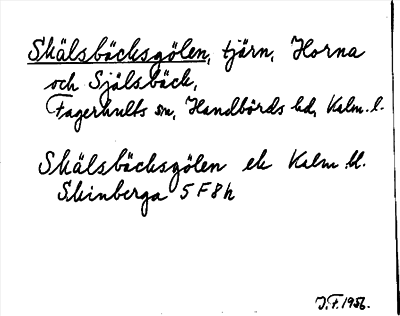 Skälsbäcksgölen, tjärn, Horna
och Själsbäck,
Fagerhults sn, Handbörds hd, Kalm. l.
Skälsbäcksgölen ek Kalm. bl.
Skinberga 5 F 8 h
J.F. 1956.